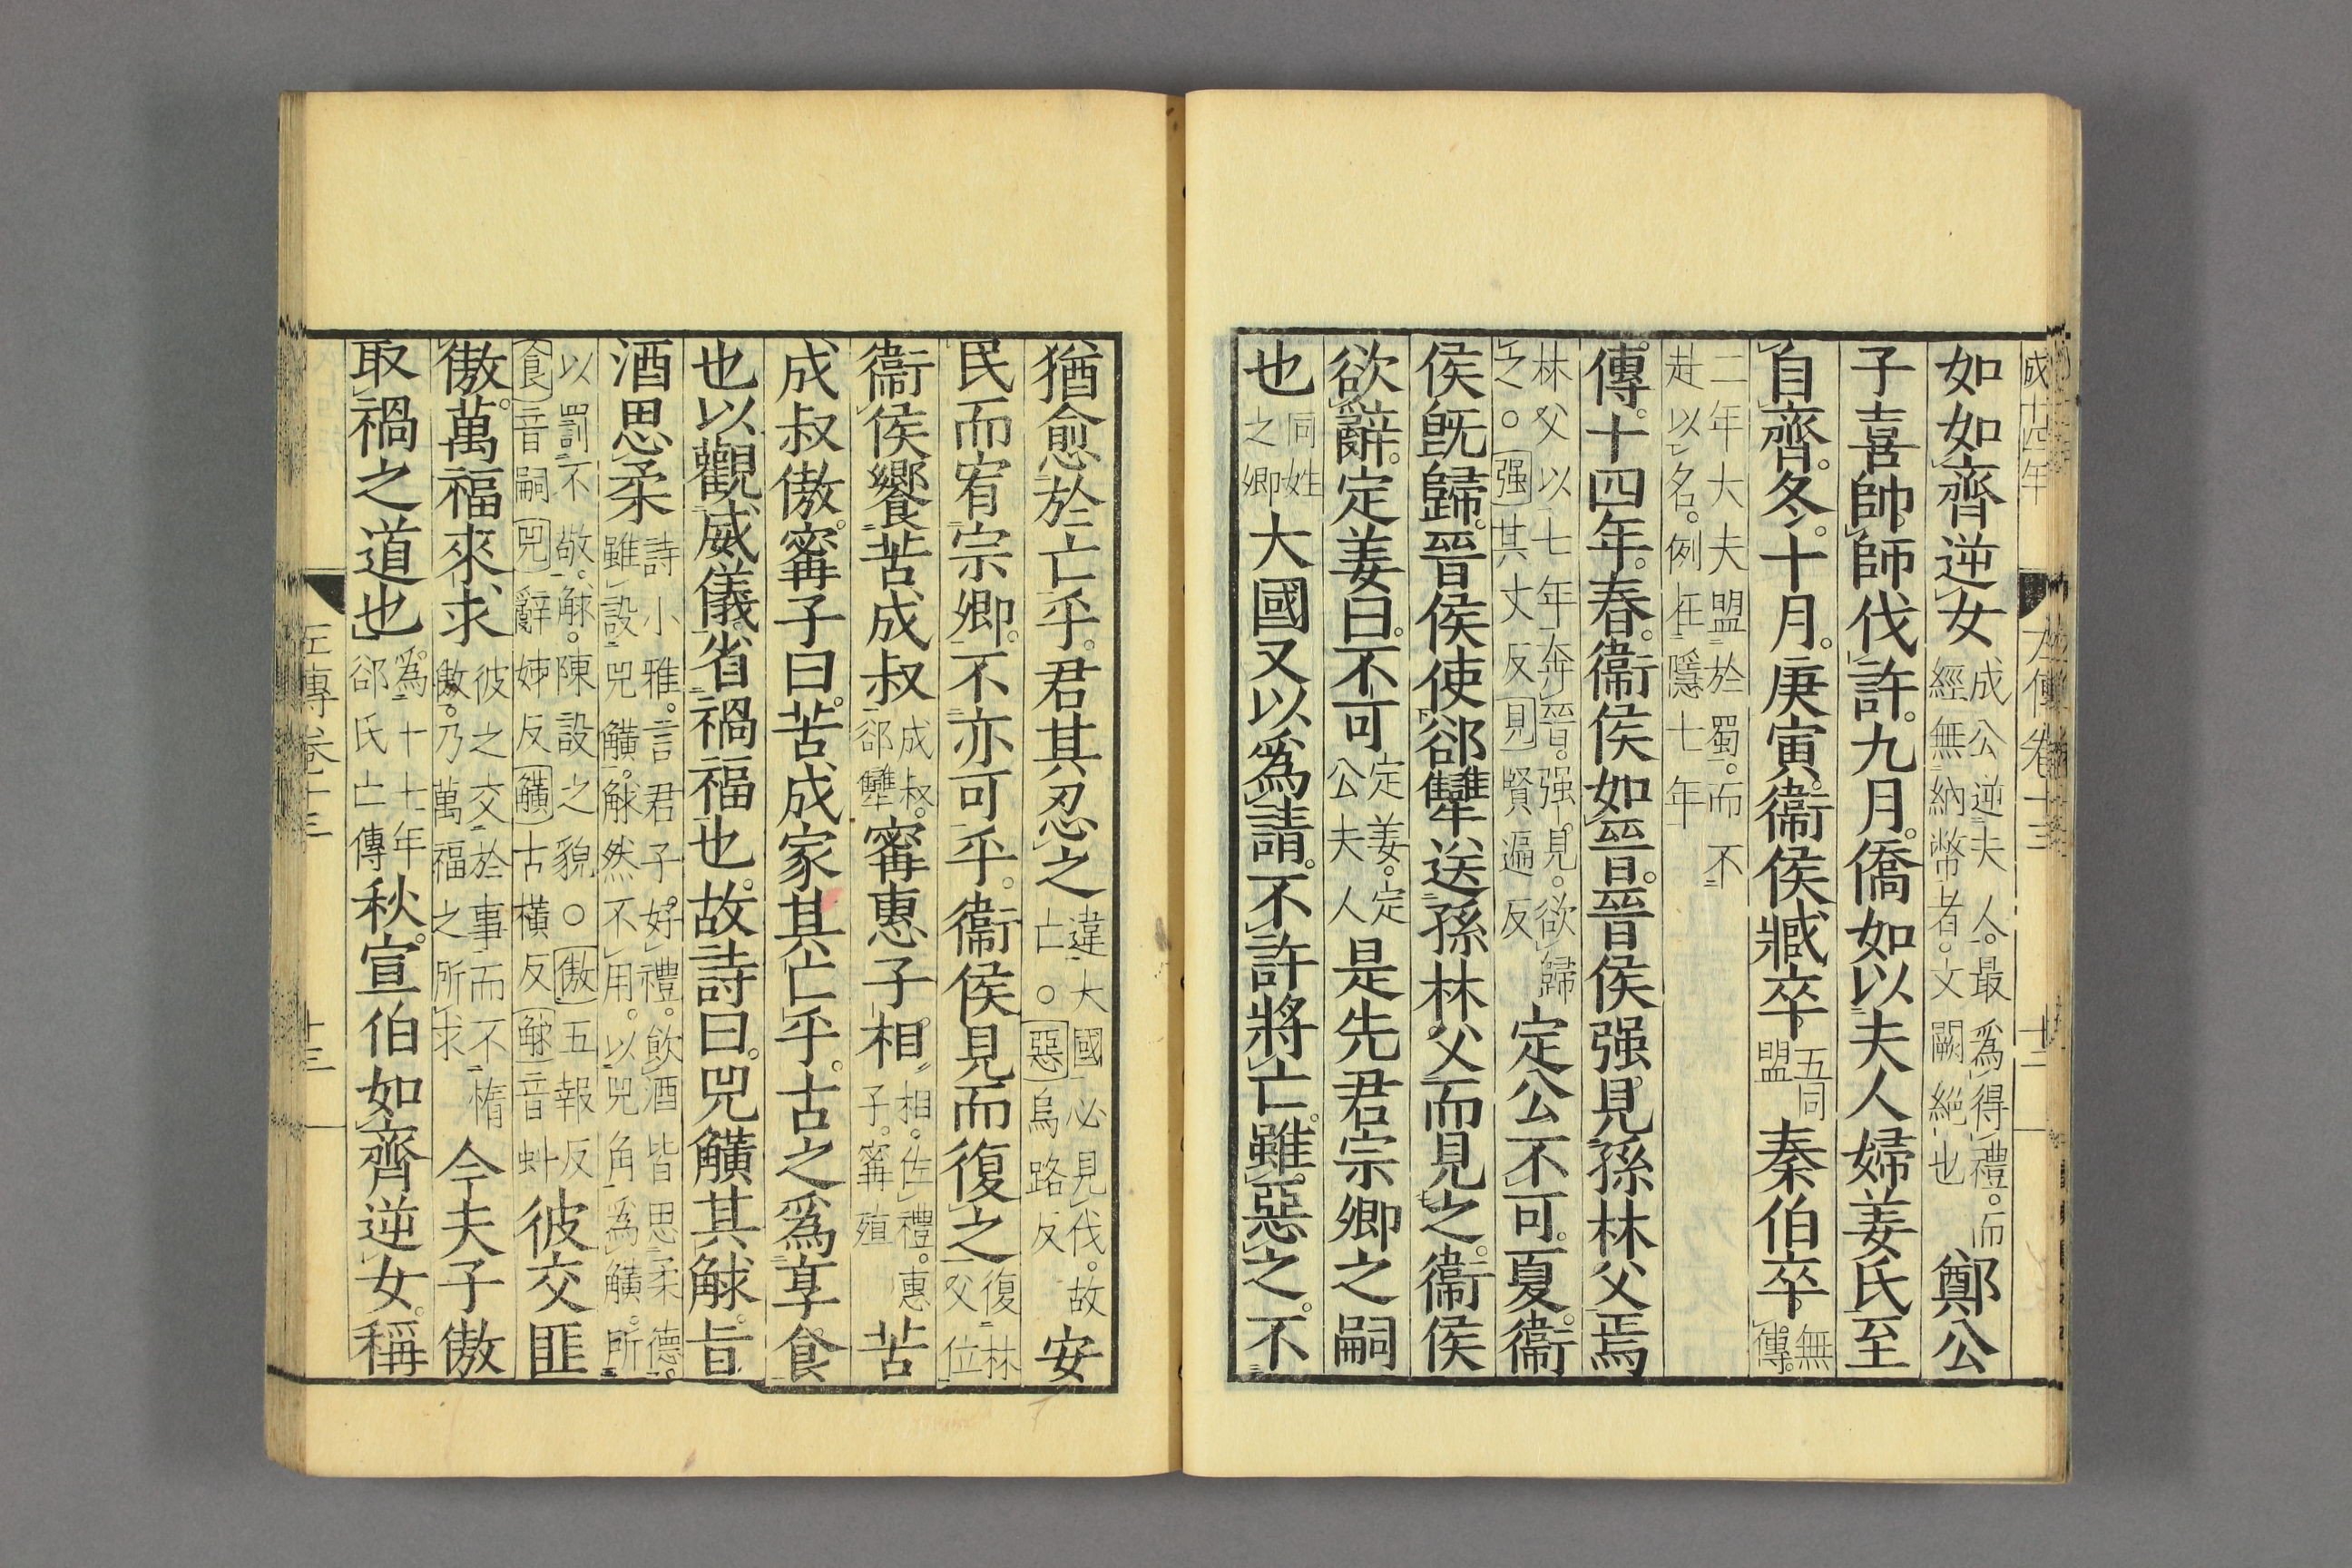 成十四年 左傳卷十三 十二
如如齊逆女成公逆夫人。最爲得禮。而經無納幣者。文闕絕也鄭公
子喜帥師伐許。九月。僑如以夫人婦姜氏至
自齊。冬。十月。庚寅。衞侯臧卒。五同盟秦伯卒。無傳。
二年大夫盟於蜀。而不赴以名。例在隱七年
傳。十四年。春。衞侯如晉。晉侯强見孫林父焉
林父以七年奔晉。强見。欲歸之。○强其丈反見賢遍反定公不可。夏。衞
侯旣歸。晉侯使郤犨送孫林父而見之。衞侯
欲辭。定姜曰。不可定姜。定公夫人是先君宗卿之嗣
也同姓之卿大國又以爲請。不許將亡。雖惡之。不
猶愈於亡乎。君其忍之違大國必見伐。故亡。○惡烏路反安
民而宥宗卿。不亦可乎。衞侯見而復之復林父位
衞侯饗苦成叔成叔。郤犨甯惠子相。相。佐禮。惠子。甯殖苦
成叔傲。甯子曰。苦成家其亡乎。古之爲享食
也以觀威儀省禍福也。故詩曰。兕觵其觩。旨
酒思柔詩小雅。言君子好禮。飲酒皆思柔德。雖設兕觵。觩然不用。以兕角爲觵。所
以罰不敬。觩。陳設之貌○傲五報反食音嗣兕辭姊反觵古橫反觩音虯彼交匪
傲。萬福來求彼之交於事而不惰傲。乃萬福之所求今夫子傲
取禍之道也爲十七年郤氏亡傳秋。宣伯如齊逆女。稱
左傳卷十三 十三